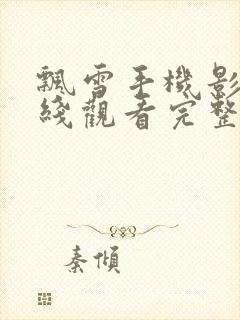 飄雪手機影
綫觀看完整
秦傾